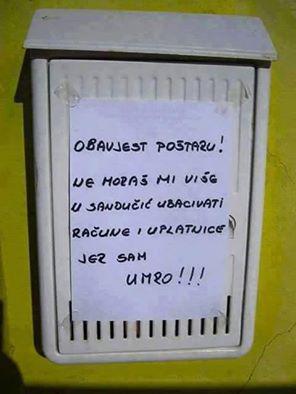 OBAVJEST POŠTARU!
NE MORAŠ MI VIŠE
U SANDUČIĆ UBACIVATI
RAČUNE I UPLATNICE
JER SAM
UMRO!!!